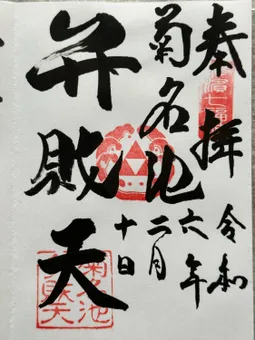 奉拝
菊名池
弁財天
令和
六年
二月
十日
菊名池
弁財天